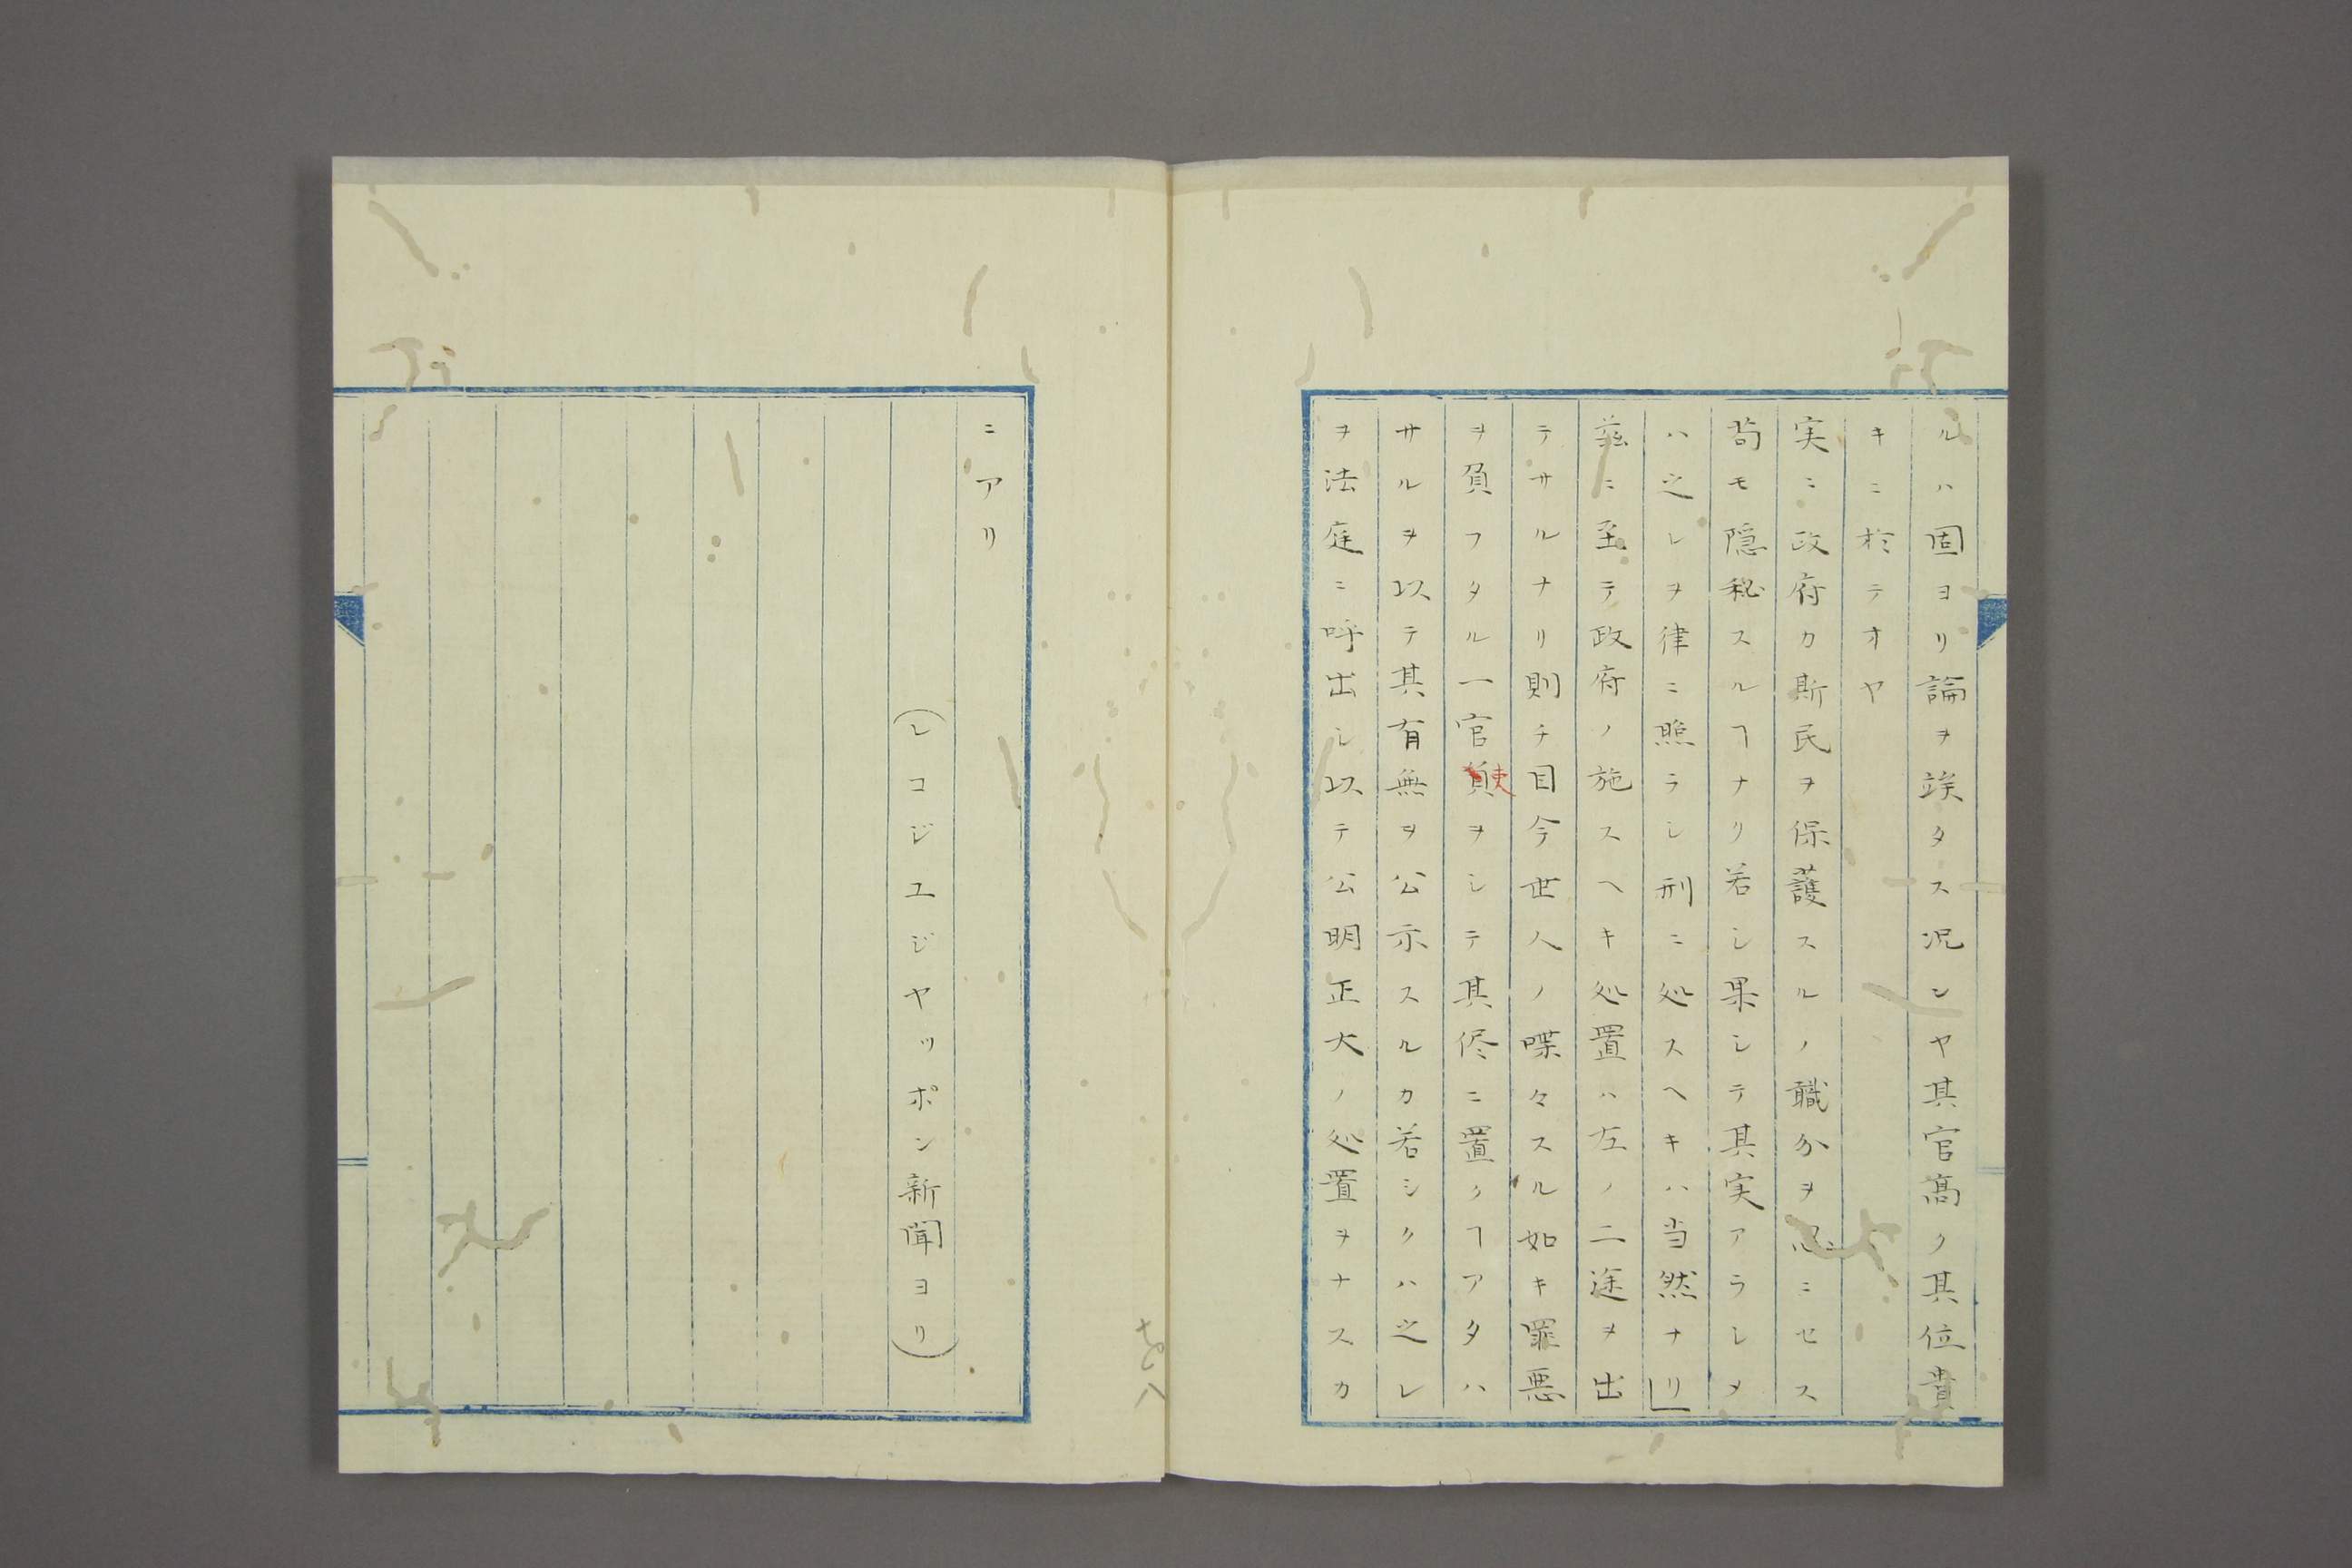 ルハ固ヨリ論ヲ竢タス況ンヤ其官高ク其位貴
キニ於テオヤ
実ニ政府カ斯民ヲ保護スルノ職分ヲ忽ニセス
苟モ隠秘スルヿナク若シ果シテ其実アラシメ
ハ之レヲ律ニ照ラシ刑ニ処スヘキハ当然ナリ」
茲ニ至テ政府ノ施スヘキ処置ハ左ノ二途ヲ出
テサルナリ則チ目今世人ノ喋々スル如キ罪悪
ヲ負フタル一官吏ヲシテ其侭ニ置クヿアタハ
サルヲ以テ其有無ヲ公示スルカ若シクハ之レ
ヲ法庭ニ呼出シ以テ公明正大ノ処置ヲナスカ
ニアリ
(レコジユジヤッポン新聞ヨリ)